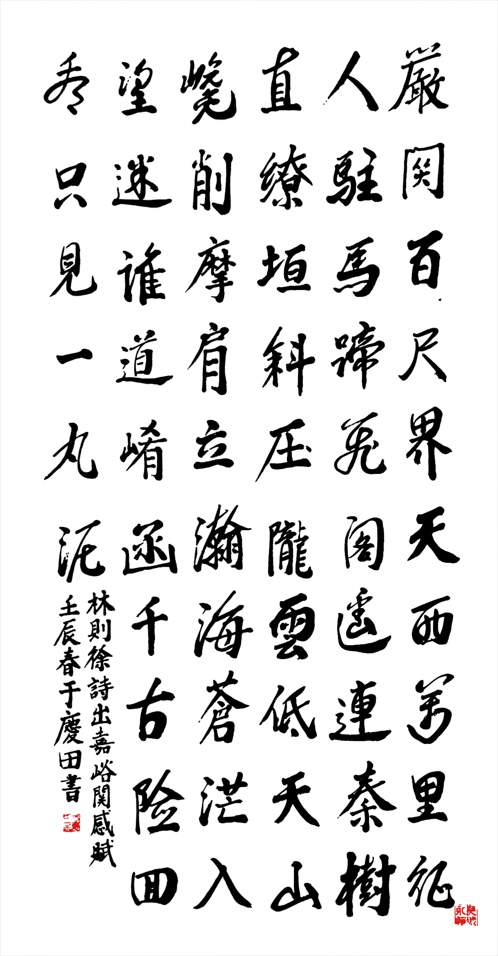 嚴関百尺界天西萬里征
人駐馬蹄飛閣遥連秦樹
直繚垣斜压隴雲低天山
巉削摩肩立瀚海蒼茫入
望迷誰道崤函千古险囬
看只見一丸泥
林則徐詩出嘉峪関感賦
壬辰春于慶田書